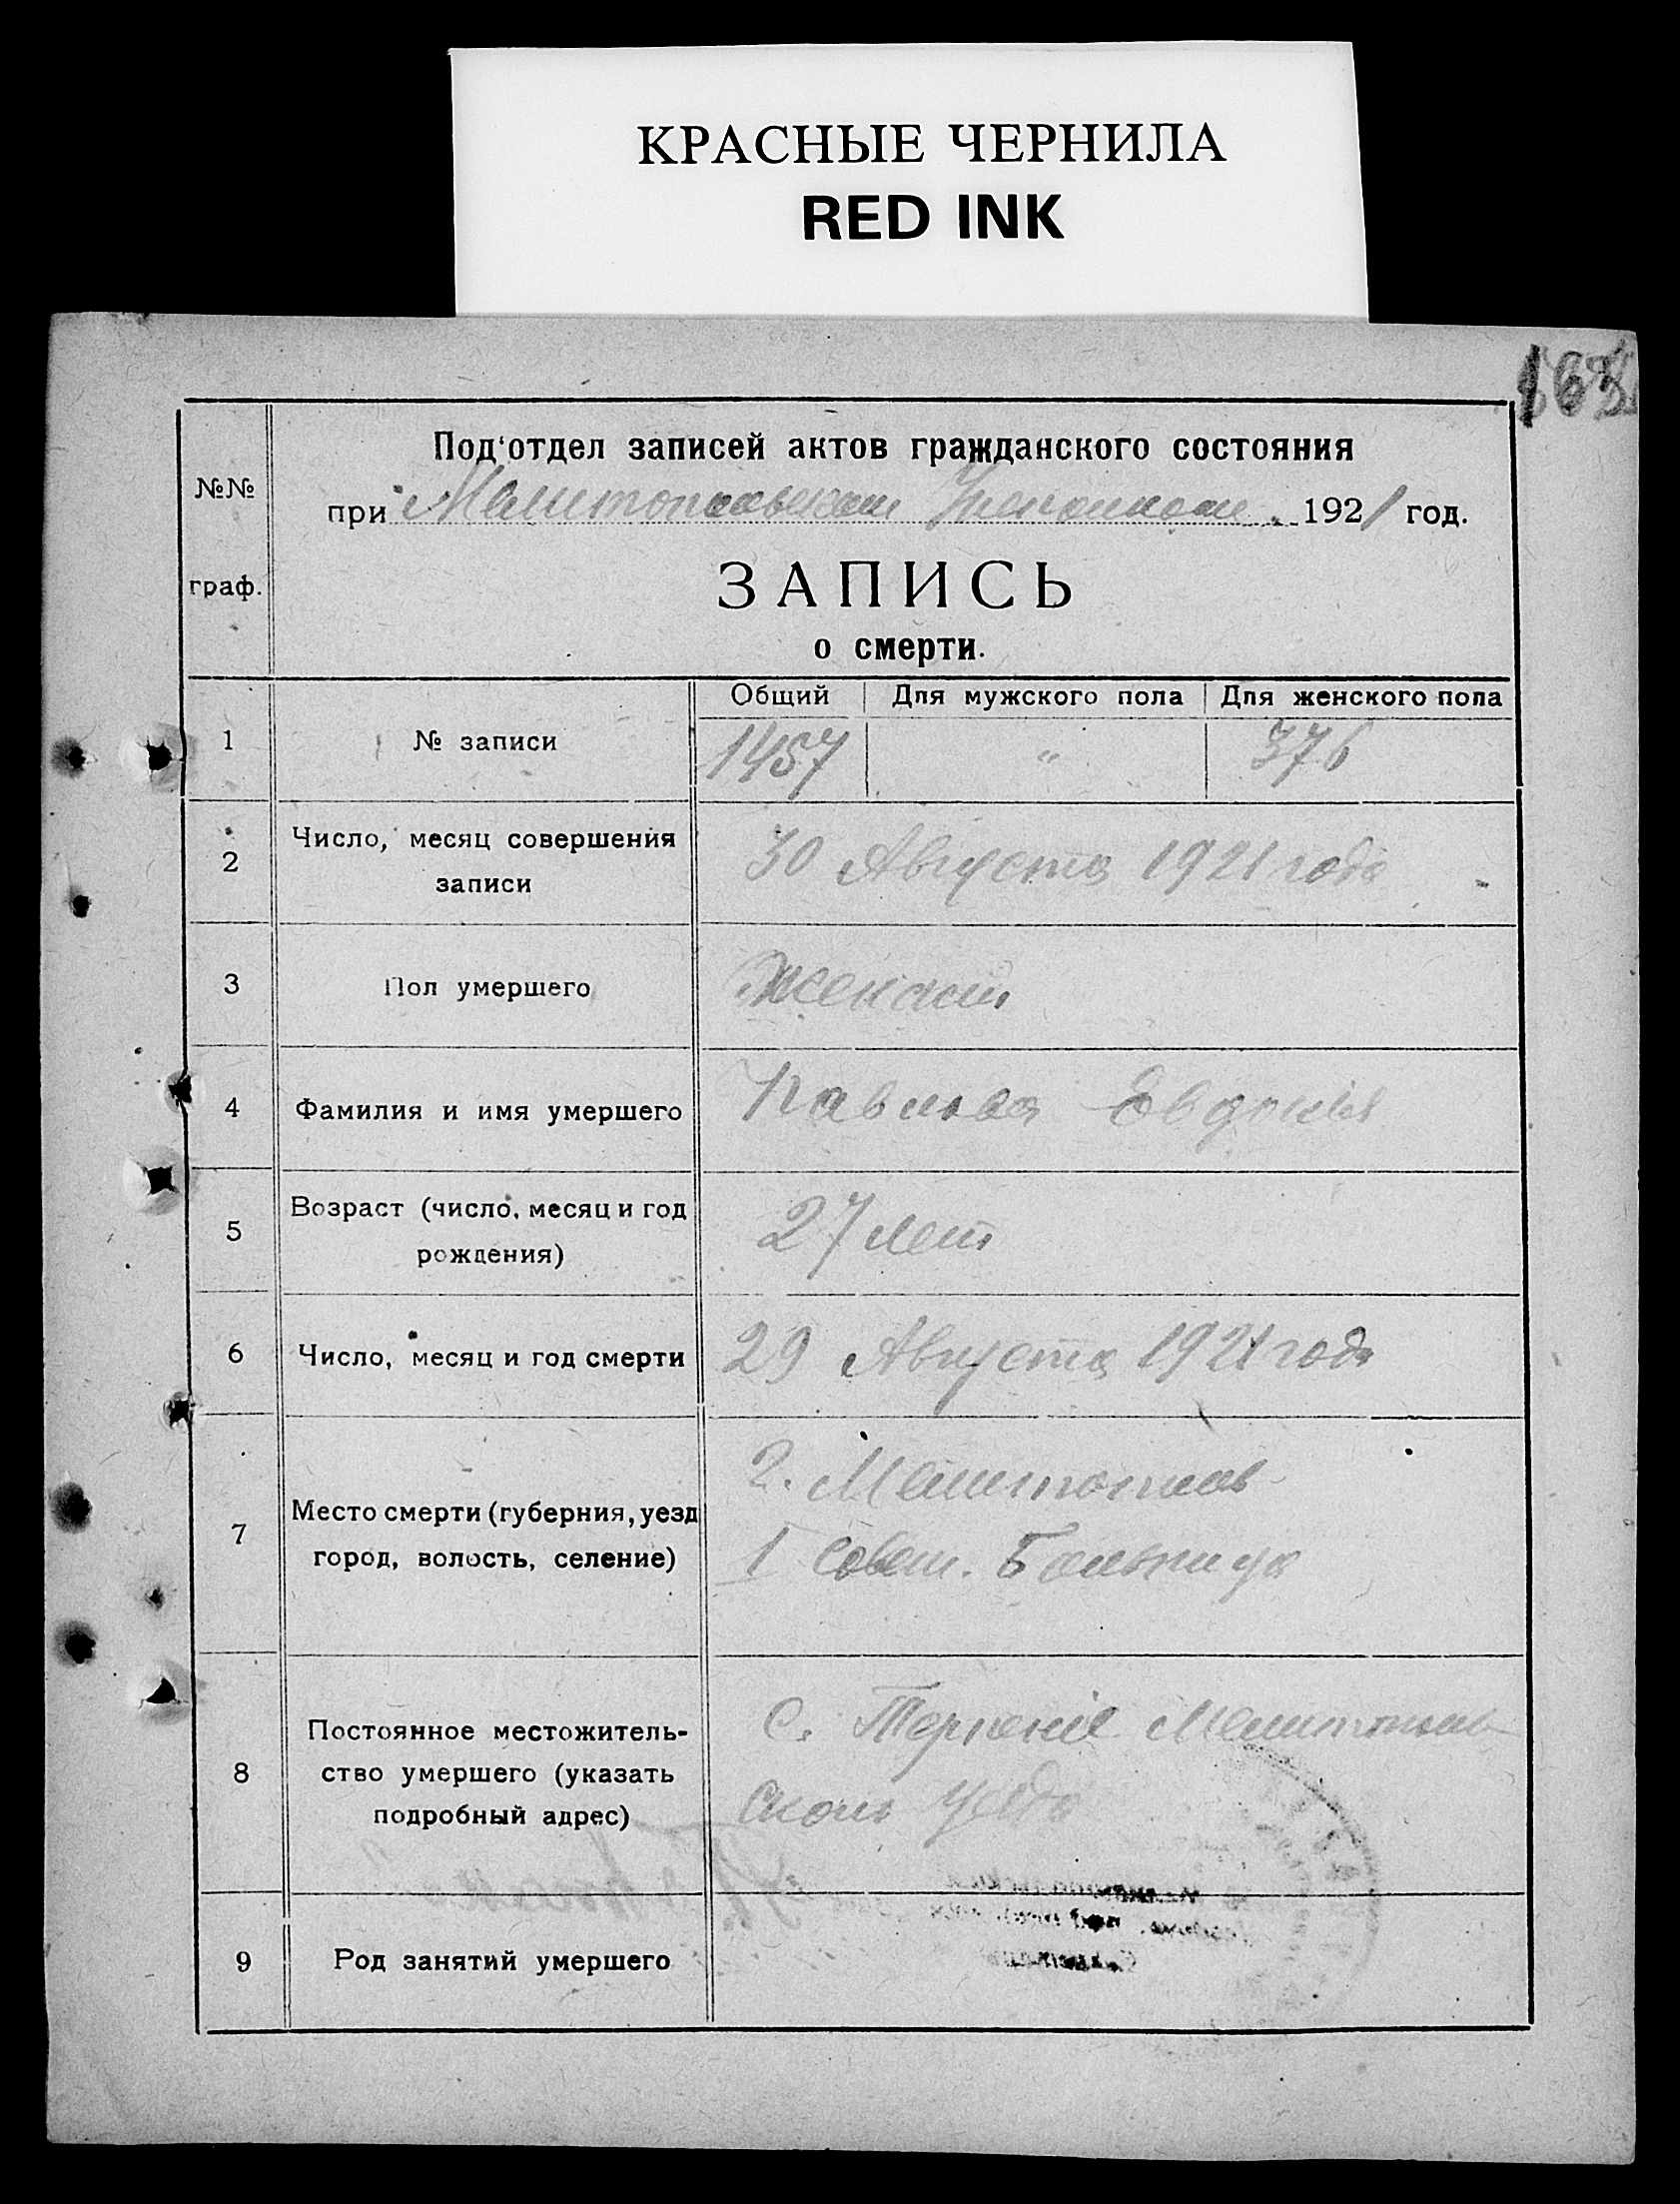 КРАСНЫЕ ЧЕРНИЛА
RED INK
Под'отдел записей актов гражданского состояния
№№
при Мелитопольском Уисполкоме. 1921 год.
граф.
ЗАПИСЬ
о смерти.
Общий Для мужского пола Для женского пола
1 № записи 1457 " 376
2 Число, месяц совершения
записи
30 Августа 1921 года
3 Пол умершего Женский
4 Фамилия и имя умершего Павлова Евдокия
5 Возраст (число, месяц и год
рождения)
27 лет
6 Число, месяц и год смерти 29 Августа 1921 года
7 Место смерти (губерния, уезд
город, волость, селение)
г. Мелитополь
1 Совет. Больница
8 Постоянное местожитель-
ство умершего (указать
подробный адрес)
С. Терпение Мелитополь
ского Уезда
9 Род занятий умершего